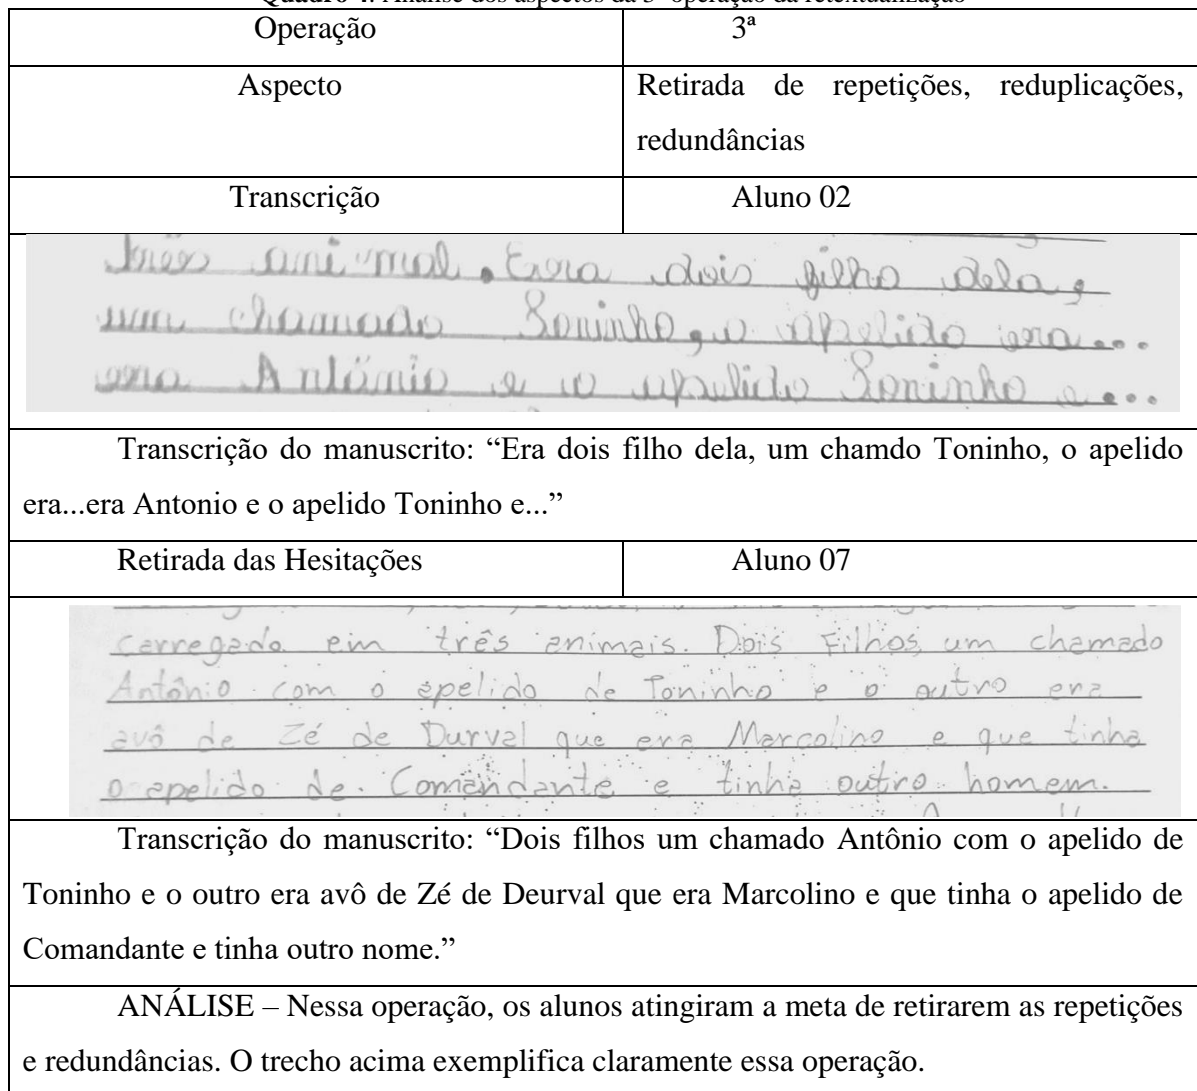 Quadro 4. Análise dos aspectos da 3ª operação da retextualização
Operação 3ª
Aspecto Retirada de repetições, reduplicações,
redundâncias
Transcrição Aluno 02
três animal. Era dois filho dela,
um chamado Toninho, o apelido era...
era Antônio e o apelido Toninho e...
Transcrição do manuscrito: “Era dois filho dela, um chamdo Toninho, o apelido
era...era Antonio e o apelido Toninho e...”
Retirada das Hesitações Aluno 07
carregado em três animais. Dois Filhos, um chamado
Antônio com o apelido de Toninho e o outro era
avô de Zé de Durval que era Marcolino e que tinha
o apelido de. Comandante e tinha outro homem.
Transcrição do manuscrito: “Dois filhos um chamado Antônio com o apelido de
Toninho e o outro era avô de Zé de Deurval que era Marcolino e que tinha o apelido de
Comandante e tinha outro nome.”
ANÁLISE – Nessa operação, os alunos atingiram a meta de retirarem as repetições
e redundâncias. O trecho acima exemplifica claramente essa operação.